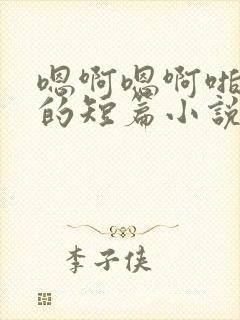 嗯啊嗯啊啪
的短篇小說
李子侠